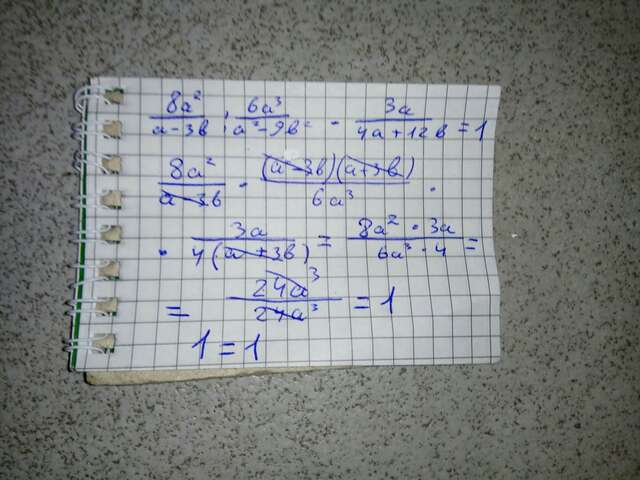 8a²/(a-3b) : 6a³/(a²-9b²) · 3a/(4a+12b) = 1
8a²/(a-3b) · (a-3b)(a+3b)/6a³ ·
· 3a/4(a+3b) = 8a²·3a/6a³·4 =
= 24a³/24a³ = 1
1 = 1